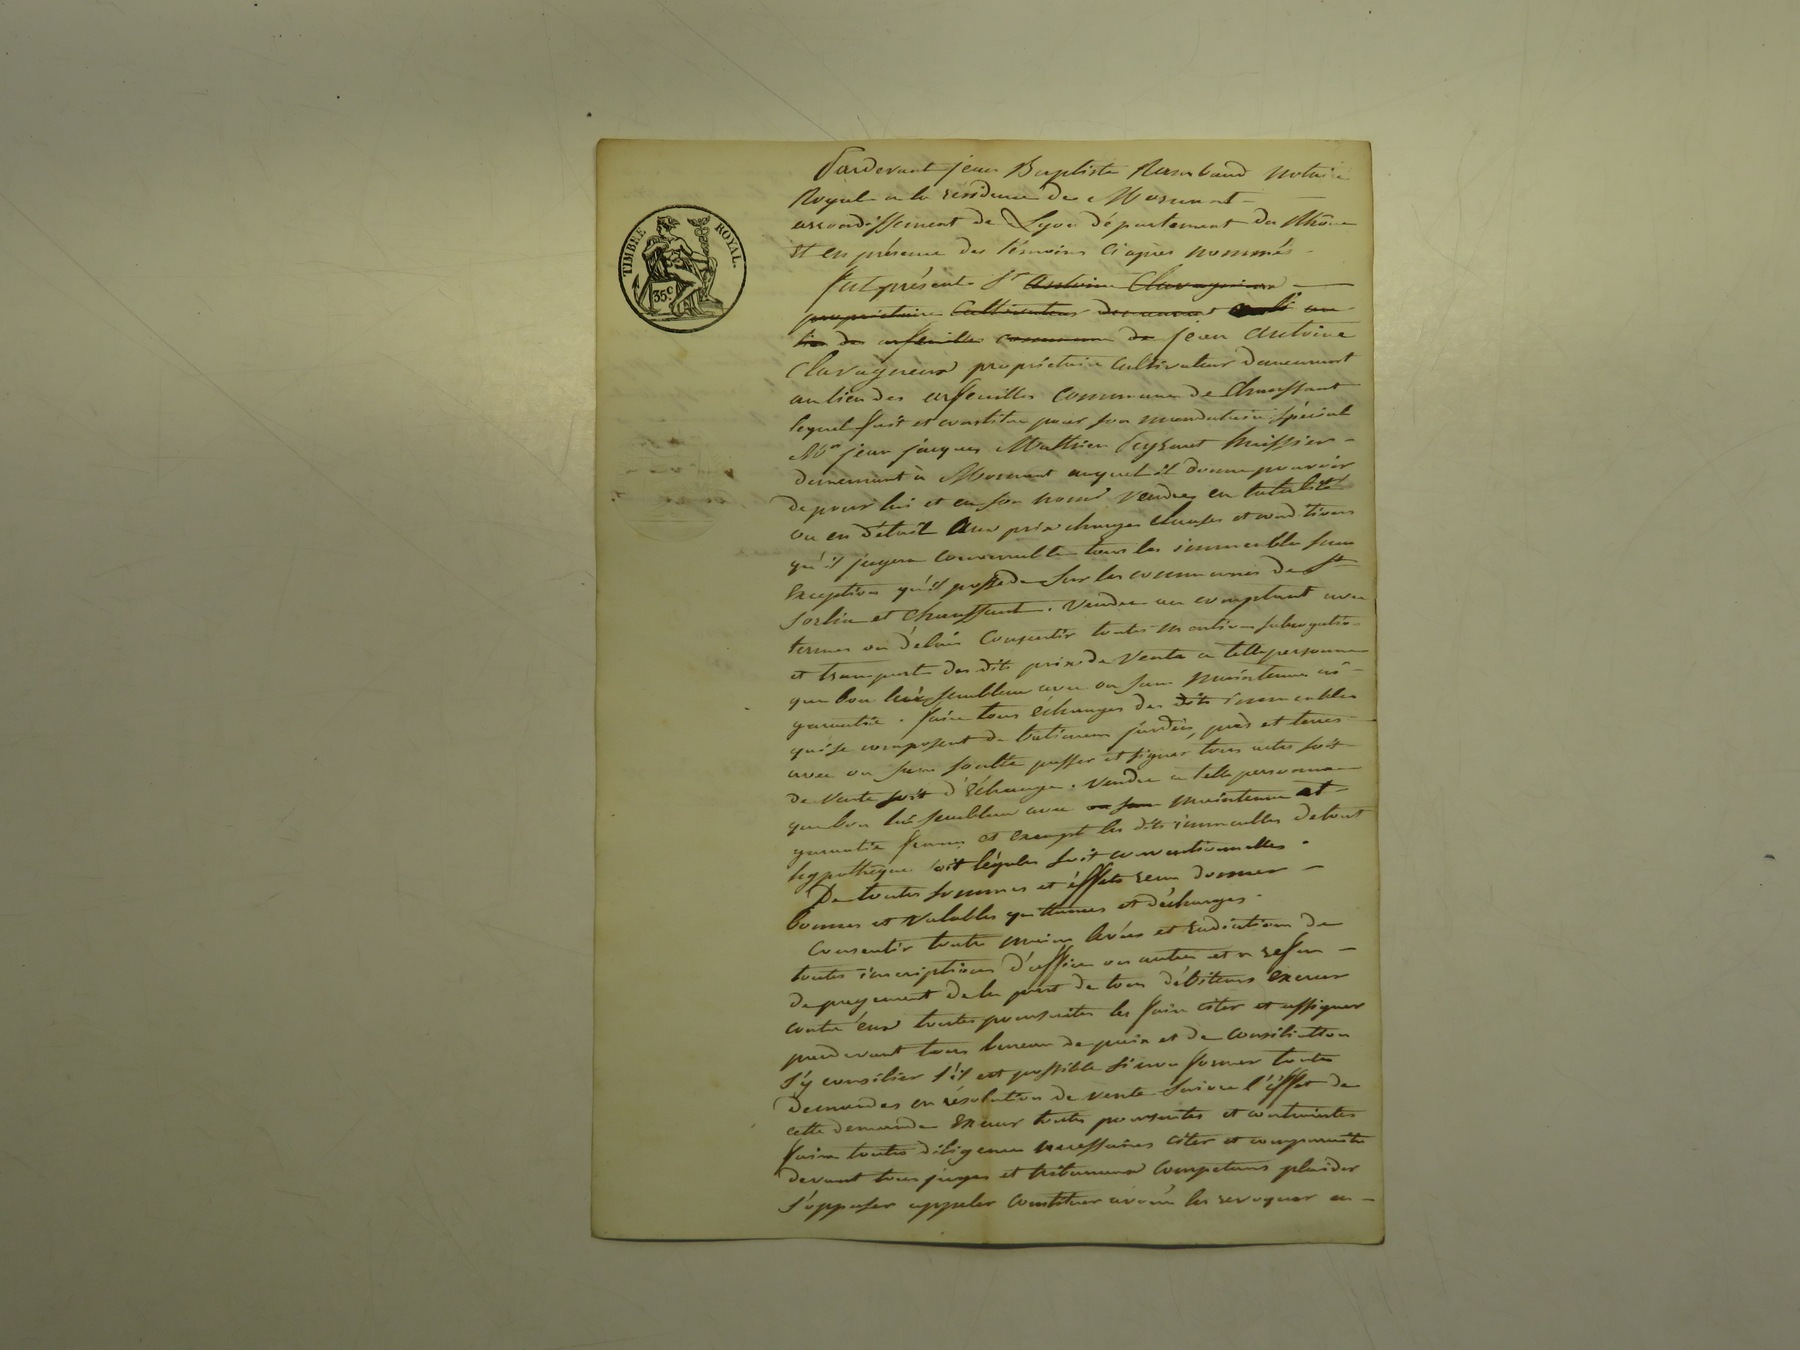 TIMBRE ROYAL.
35c
Pardevant jean Baptiste Rambaud notaire
Royal a la residence de Mornant
arrondissement de Lyon département du Rhône
et en présence des témoins ci après nommés
fut présent Sr Antoine Clavagneux
propriétaire cultivateur demeurant au
lieu des arfeuilles commune de jean Antoine
Clavagneux propriétaire cultivateur demeurant
au lieu des arfeuilles commune de Chaussant
lequel fait et constitue pour son mandataire spécial
Me jean jacques Mathieu huissier
demeurant à Mornant auquel il donne pouvoir
de pour lui et en son nom vendre en totalité
ou en détail aux prix charges clauses et conditions
qu'il jugera convenable tous les immeubles sans
exception qu'il possède sur les communes de St
Sorlin et Chaussant. Vendre au comptant avec
termes ou délais consentir toutes mentions subrogation
et transports des dits prix de vente a telle personne
que bon lui semblera avec ou sans maintenue ni
garantie. faire tous échanges des dits immeubles
qui se composent de batiment jardin, près et terres
avec ou sans soulte passer et signer tous actes soit
de vente soit d'échange. vendre a telle personne
que bon lui semblera avec ou sans maintenue et
garantie francs et exempt les dits immeubles de tout
hypothèque soit légales soit conventionnelles.
De toutes sommes et effets recus donner
bonnes et valables quittances et décharges.
Consentir toute main levées et radiation de
toutes inscriptions d'office ou autres et a refus
de payement de la part de tous débiteurs exercer
contre eux toutes poursuites les faire citer et assigner
pardevant tous bureau de paix et de consiliation
s'y consilier s'il est possible sinon former toutes
demandes en résolution de vente suivre l'éffet de
cette demande exercer toutes poursuites et contraintes
faire toutes diligences necessaires citer et comparaitre
devant tous juges et tribunaux competans plaider
s'opposer appeler constituer avoué les revoquer en